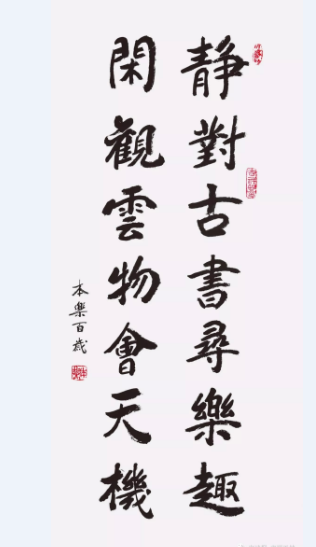 静對古書尋樂趣
閑觀雲物會天機
本樂百歲